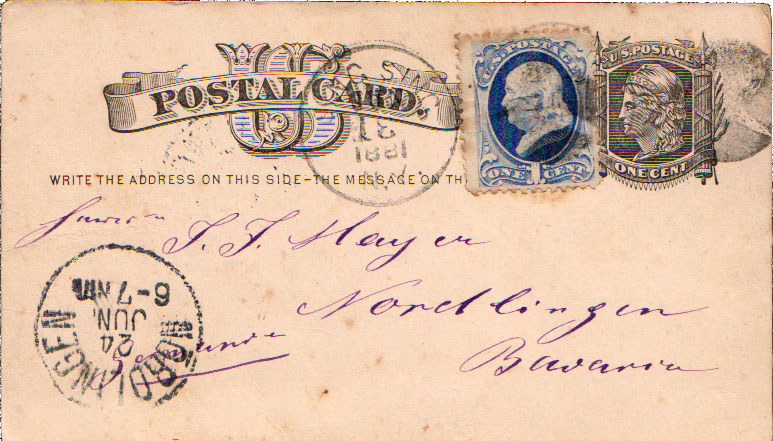 US
POSTAL CARD.
U.S. POSTAGE
ONE CENT
U.S. POSTAGE
ONE CENT
1881
WRITE THE ADDRESS ON THIS SIDE–THE MESSAGE ON TH
J. J. Mayer
Nordlingen
Bavaria
NÖRDLINGEN
24
JUN.
6-7 NM.